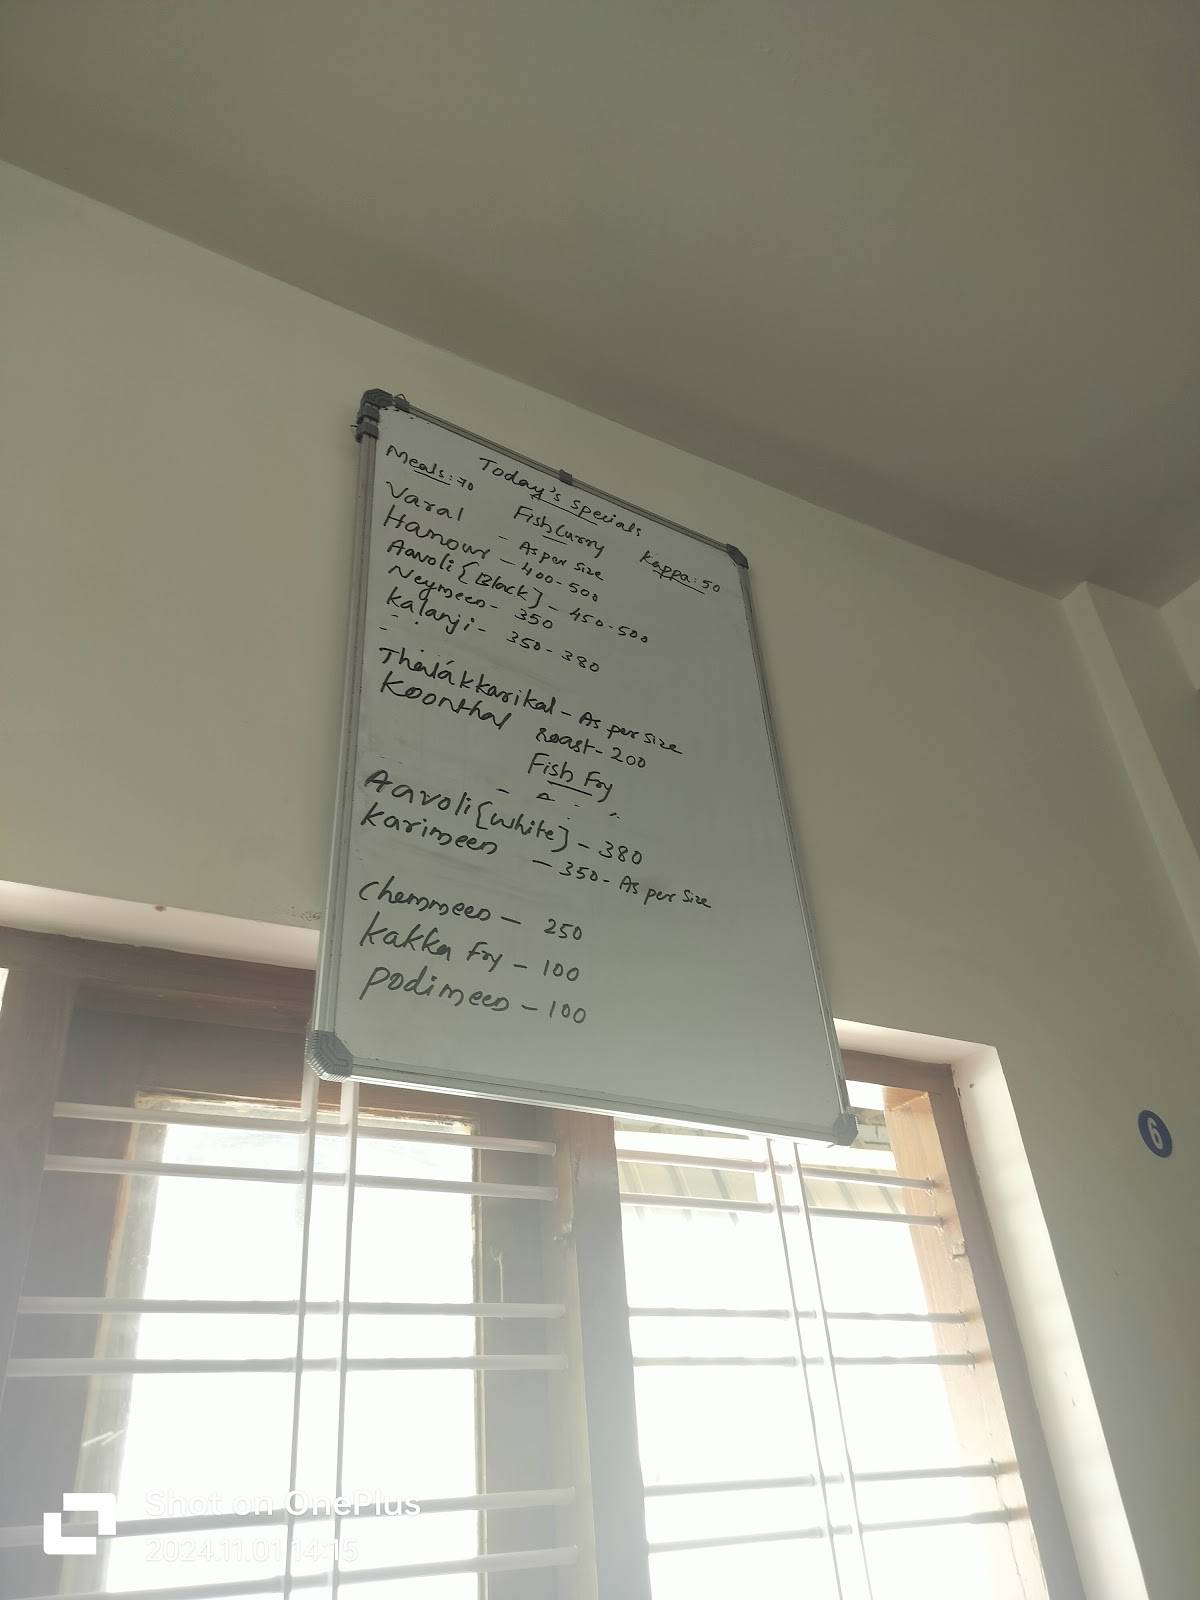 Today's specials
Meals: 70
Fish Curry
Kappa: 50
Varal - As per size
Hamour - 400-500
Aavoli [Black] - 450-500
Neymeen - 350
Kalanji - 350-380
Thalakkarikal - As per size
Koonthal roast - 200
Fish Fry
Aavoli [White] - 380
Karimeen - 350 - As per size
Chemmeen - 250
Kakka Fry - 100
Podimeen - 100
6
Shot on OnePlus
2024.11.01 14:15